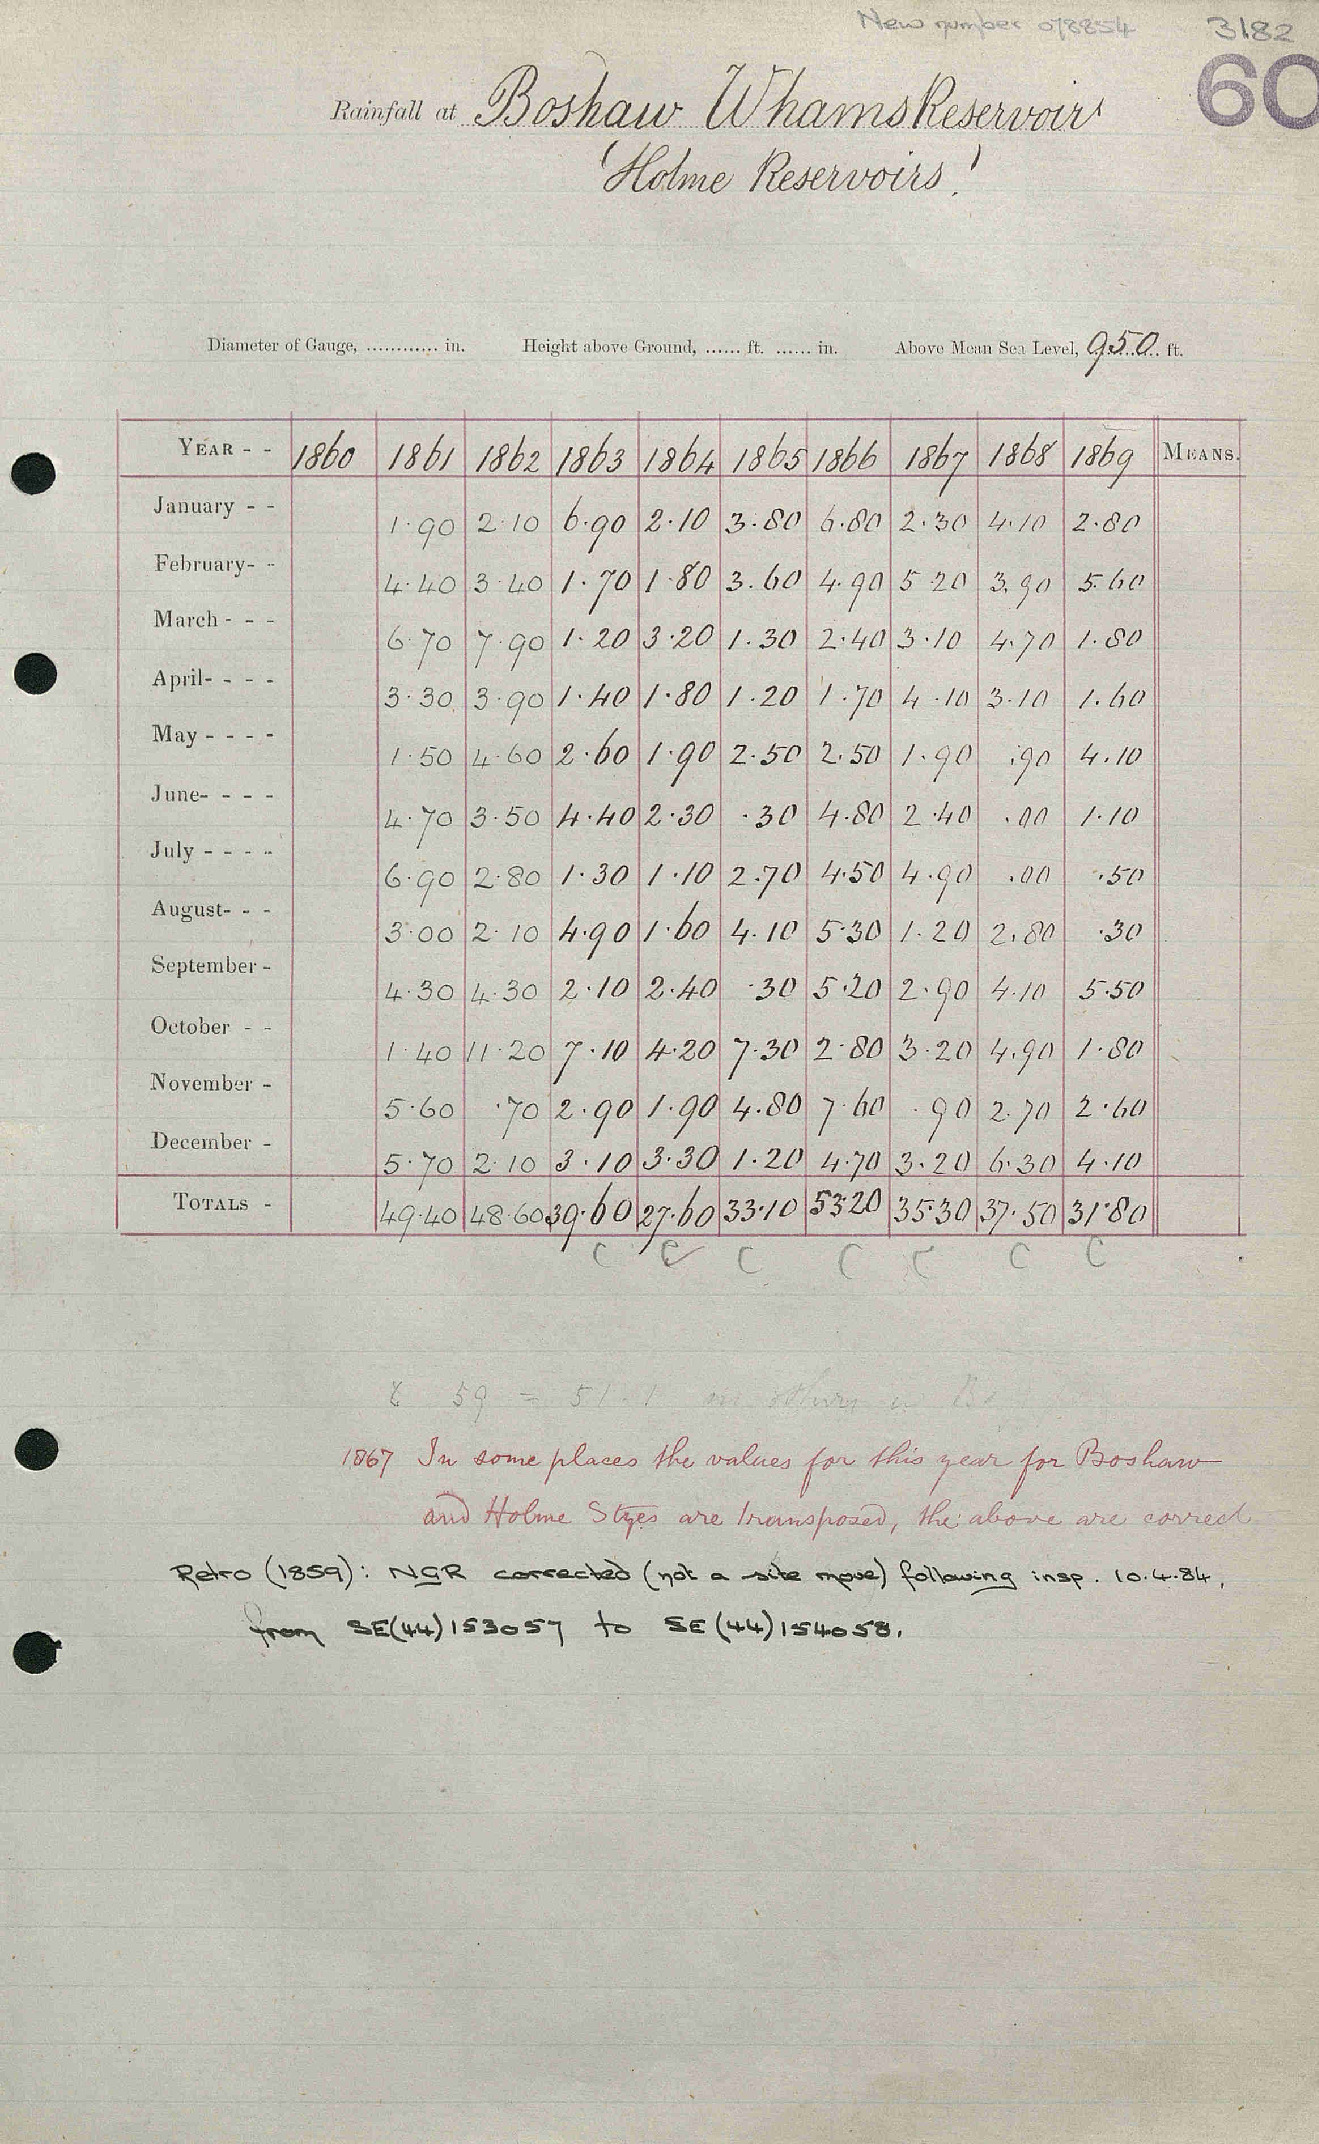 New number 078854 3182
60
Rainfall at Boshaw Whams Reservoir
'Holme Reservoirs'
Diameter of Gauge, ............ in. Height above Ground, ...... ft. ...... in. Above Mean Sea Level, 950 ft.
YEAR - - 1860 1861 1862 1863 1864 1865 1866 1867 1868 1869 MEANS.
January - - 1.90 2.10 6.90 2.10 3.80 6.80 2.30 4.10 2.80
February- - 4.40 3.40 1.70 1.80 3.60 4.90 5.20 3.90 5.60
March - - - 6.70 7.90 1.20 3.20 1.30 2.40 3.10 4.70 1.80
April- - - - 3.30 3.90 1.40 1.80 1.20 1.70 4.10 3.10 1.60
May - - - - 1.50 4.60 2.60 1.90 2.50 2.50 1.90 .90 4.10
June- - - - 4.70 3.50 4.40 2.30 .30 4.80 2.40 .00 1.10
July - - - - 6.90 2.80 1.30 1.10 2.70 4.50 4.90 .00 .50
August- - - 3.00 2.10 4.90 1.60 4.10 5.30 1.20 2.80 .30
September - 4.30 4.30 2.10 2.40 .30 5.20 2.90 4.10 5.50
October - - 1.40 11.20 7.10 4.20 7.30 2.80 3.20 4.90 1.80
November - 5.60 .70 2.90 1.90 4.80 7.60 .90 2.70 2.60
December - 5.70 2.10 3.10 3.30 1.20 4.70 3.20 6.30 4.10
TOTALS - 49.40 48.60 39.60 27.60 33.10 53.20 35.30 37.50 31.80
C C C C C C C
59 = 51.1
1867 In some places the values for this year for Boshaw
and Holme Styes are transposed, the above are correct
Retro (1859): NGR corrected (not a site move) following insp. 10.4.84,
from SE(44)153057 to SE(44)154058.